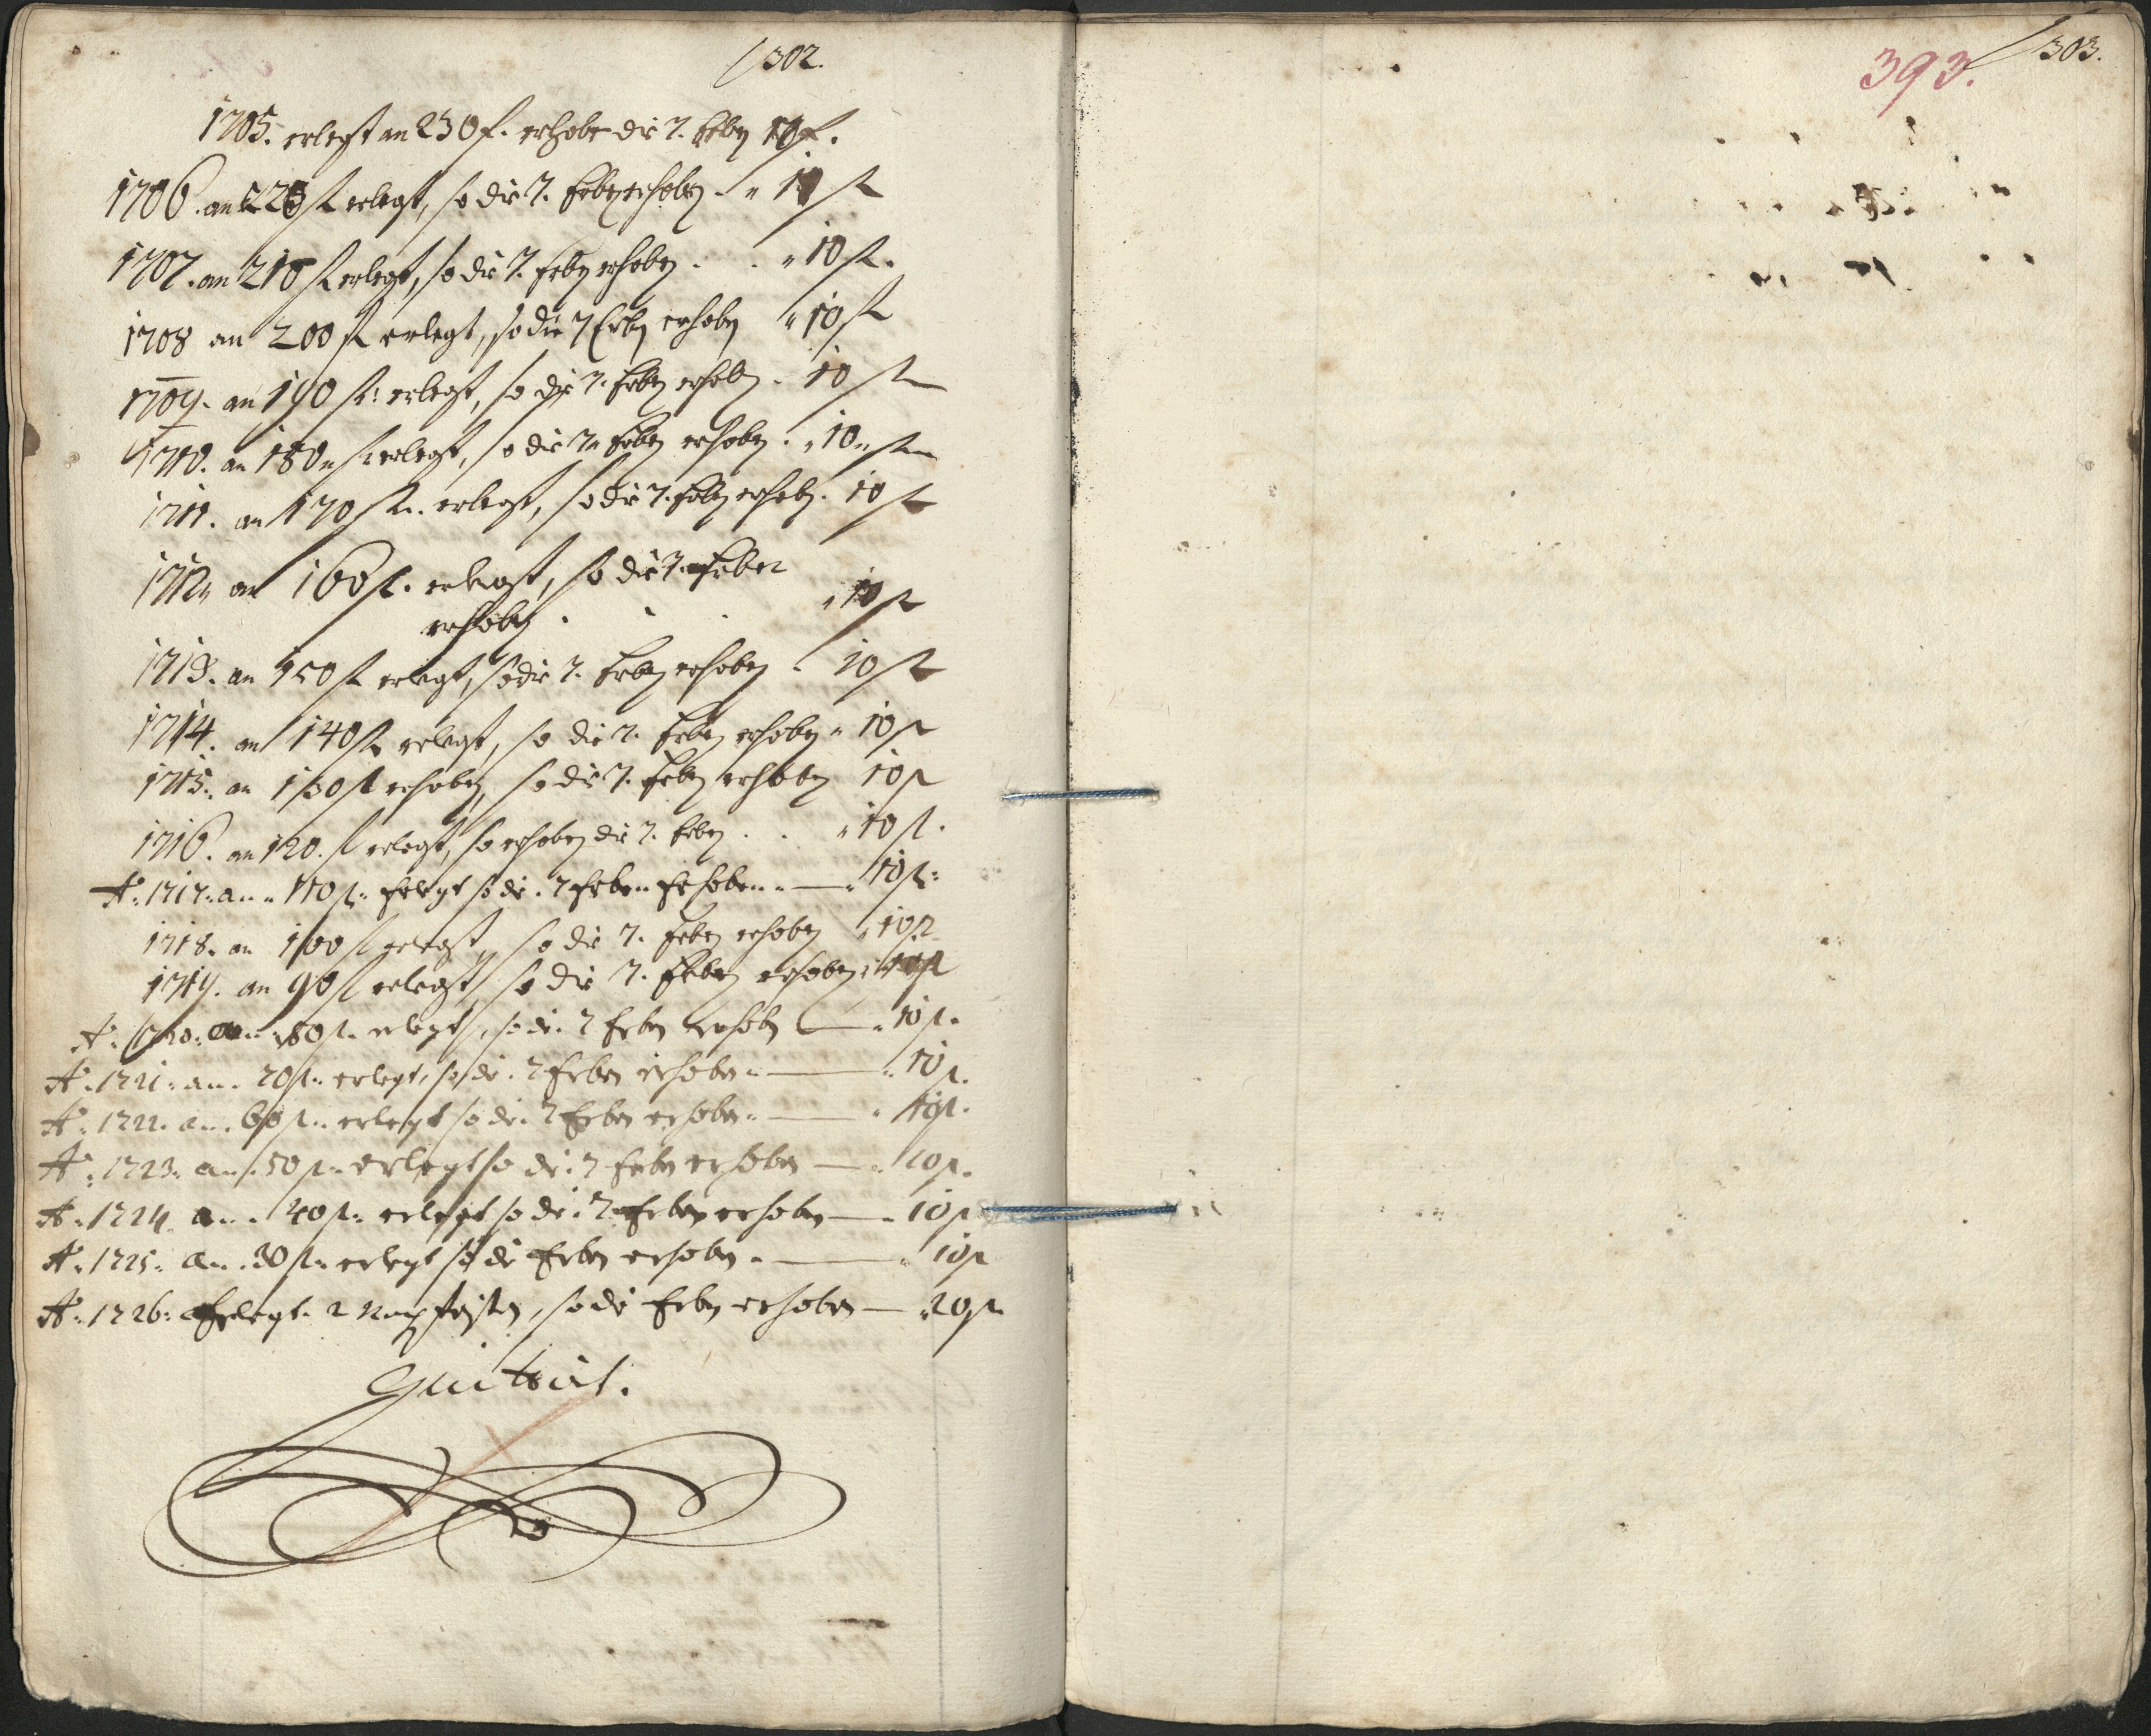 302.
1705. erlegt an 230 f. erhobe die 7. Erben 10 f.
1706. an 220 fl erlegt, so die 7. Erben erhoben. " 10 fl
1707. an 210 fl erlegt, so die 7. Erben erhoben . . " 10 fl.
1708 an 200 fl erlegt, so die 7 Erben erhoben " 10 fl
1709. an 190 fl: erlegt, so die 7. Erben erhoben. 10 fl
1710. an 180 " fl erlegt, so die 7 " Erben erhoben. " 10 " fl
1711. an 170 fl. erlegt, so die 7. Erben erhoben. 10 fl
1712 " an 160 fl. erlegt, so die 7. Erben
erhoben . . . " 10 fl
1713. an 150 fl erlegt, so die 7. Erben erhoben . 10 fl
1714. an 140 fl erlegt, so die 7. Erben erhoben " 10 fl
1715. an 130 fl erhoben, so die 7. Erben erhoben 10 fl
1716. an 120. fl erlegt, so erhoben die 7. Erben . . " 10 fl.
Aō: 1717: an " 110 fl: Erlegt so die . 7 Erben Erhoben " — " 10 fl:
1718. an 100 fl erlegt, so die 7. Erben erhoben " 10 fl
1719. an 90 fl erlegt, so die 7. Erben erhoben: 10 fl
Aō: 1720: an: 80 fl. erlegt, so die . 7 Erben erhoben — " 10 fl.
Aō: 1721: an . 70 fl: erlegt, so die . 7 Erben erhoben " — " 10 fl.
Aō: 1722. an . 60 fl: erlegt so die . 7 Erben erhoben " — " 10 fl.
Aō: 1723: an . 50 fl: erlegt so die . 7 Erben erhoben — " 10 fl.
Aō: 1724. an . 40 fl: erlegt so die . 7 Erben erhoben — " 10 fl
Aō: 1725: an . 30 fl: erlegt so die Erben erhoben " — " 10 fl
Aō: 1726: Erlegt 2 fristen, so die Erben erhoben — " 20 fl
Quittirt.
393.
303.